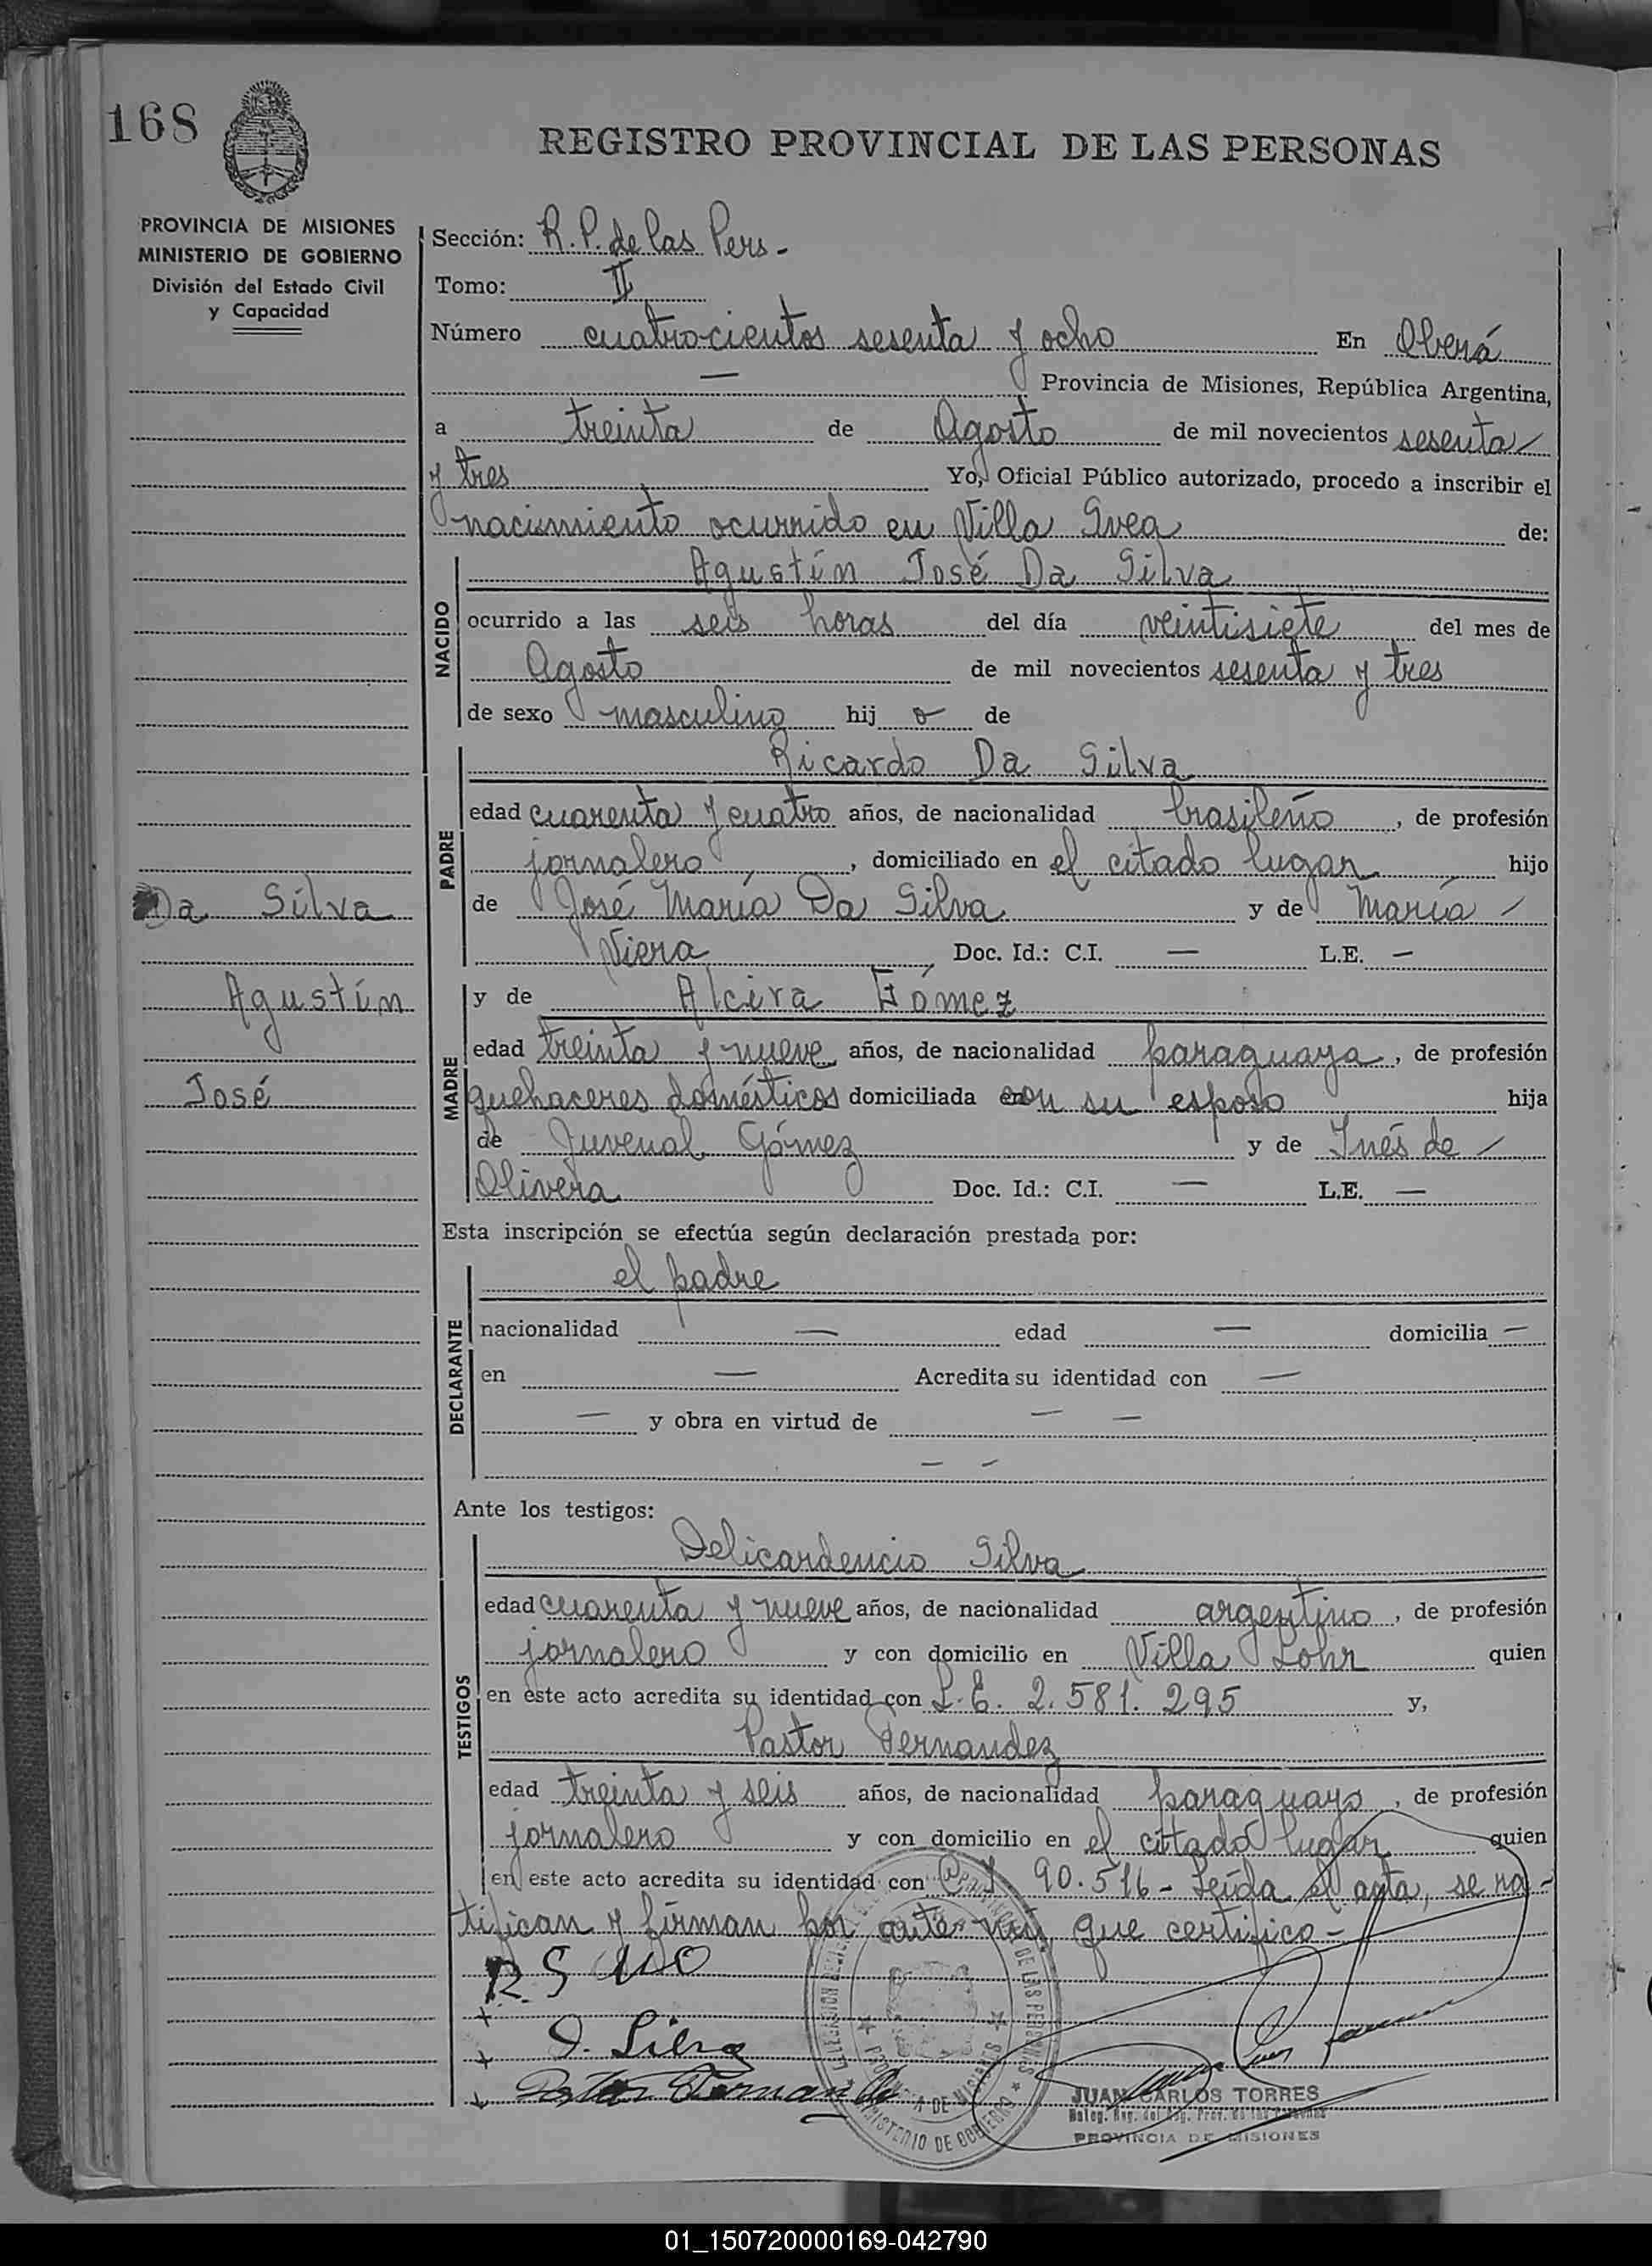 168
REGISTRO PROVINCIAL DE LAS PERSONAS
PROVINCIA DE MISIONES
MINISTERIO DE GOBIERNO
División del Estado Civil
y Capacidad
Sección: R. P. de las Pers -
Tomo: II
Número cuatrocientos sesenta y ocho En Oberá
— Provincia de Misiones, República Argentina,
a treinta de Agosto de mil novecientos sesenta
y tres Yo, Oficial Público autorizado, procedo a inscribir el
nacimiento ocurrido en Villa Svea de:
NACIDO
Agustín José Da Silva
ocurrido a las seis horas del día veintisiete del mes de
Agosto de mil novecientos sesenta y tres
de sexo masculino hij o de
PADRE
Ricardo Da Silva
edad cuarenta y cuatro años, de nacionalidad brasileño, de profesión
jornalero, domiciliado en el citado lugar hijo
de José María Da Silva y de María
Viera Doc. Id.: C.I. — L.E. —
Da Silva
Agustín
José
MADRE
y de Alcira Gómez
edad treinta y nueve años, de nacionalidad paraguaya, de profesión
quehaceres domésticos domiciliada con su esposo hija
de Juvenal Gómez y de Inés de
Olivera Doc. Id.: C.I. — L.E. —
Esta inscripción se efectúa según declaración prestada por:
DECLARANTE
el padre
nacionalidad — edad — domicilia —
en — Acredita su identidad con —
— y obra en virtud de — —
— —
Ante los testigos:
TESTIGOS
Delicardencio Silva
edad cuarenta y nueve años, de nacionalidad argentino, de profesión
jornalero y con domicilio en Villa Lohr quien
en este acto acredita su identidad con L. E. 2.581.295 y,
Pastor Fernandez
edad treinta y seis años, de nacionalidad paraguayo, de profesión
jornalero y con domicilio en el citado lugar quien
en este acto acredita su identidad con C. I. 90.516 - Leída el acta, se ra-
tifican y firman por ante mí que certifico -
D. Silva
Pastor Fernande
DE LAS PERSONAS
PROVINCIA DE MISIONES
MINISTERIO DE GOBIERNO
JUAN CARLOS TORRES
PROVINCIA DE MISIONES
01_150720000169-042790